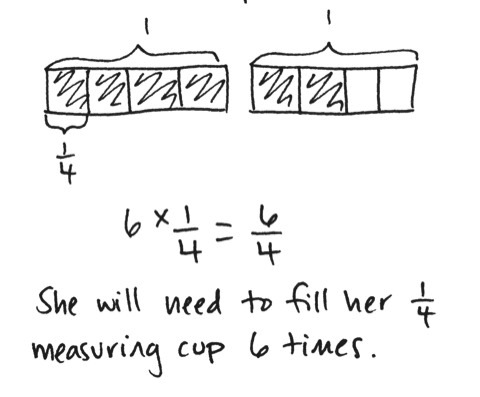 1 1
1/4
6 × 1/4 = 6/4
She will need to fill her 1/4
measuring cup 6 times.